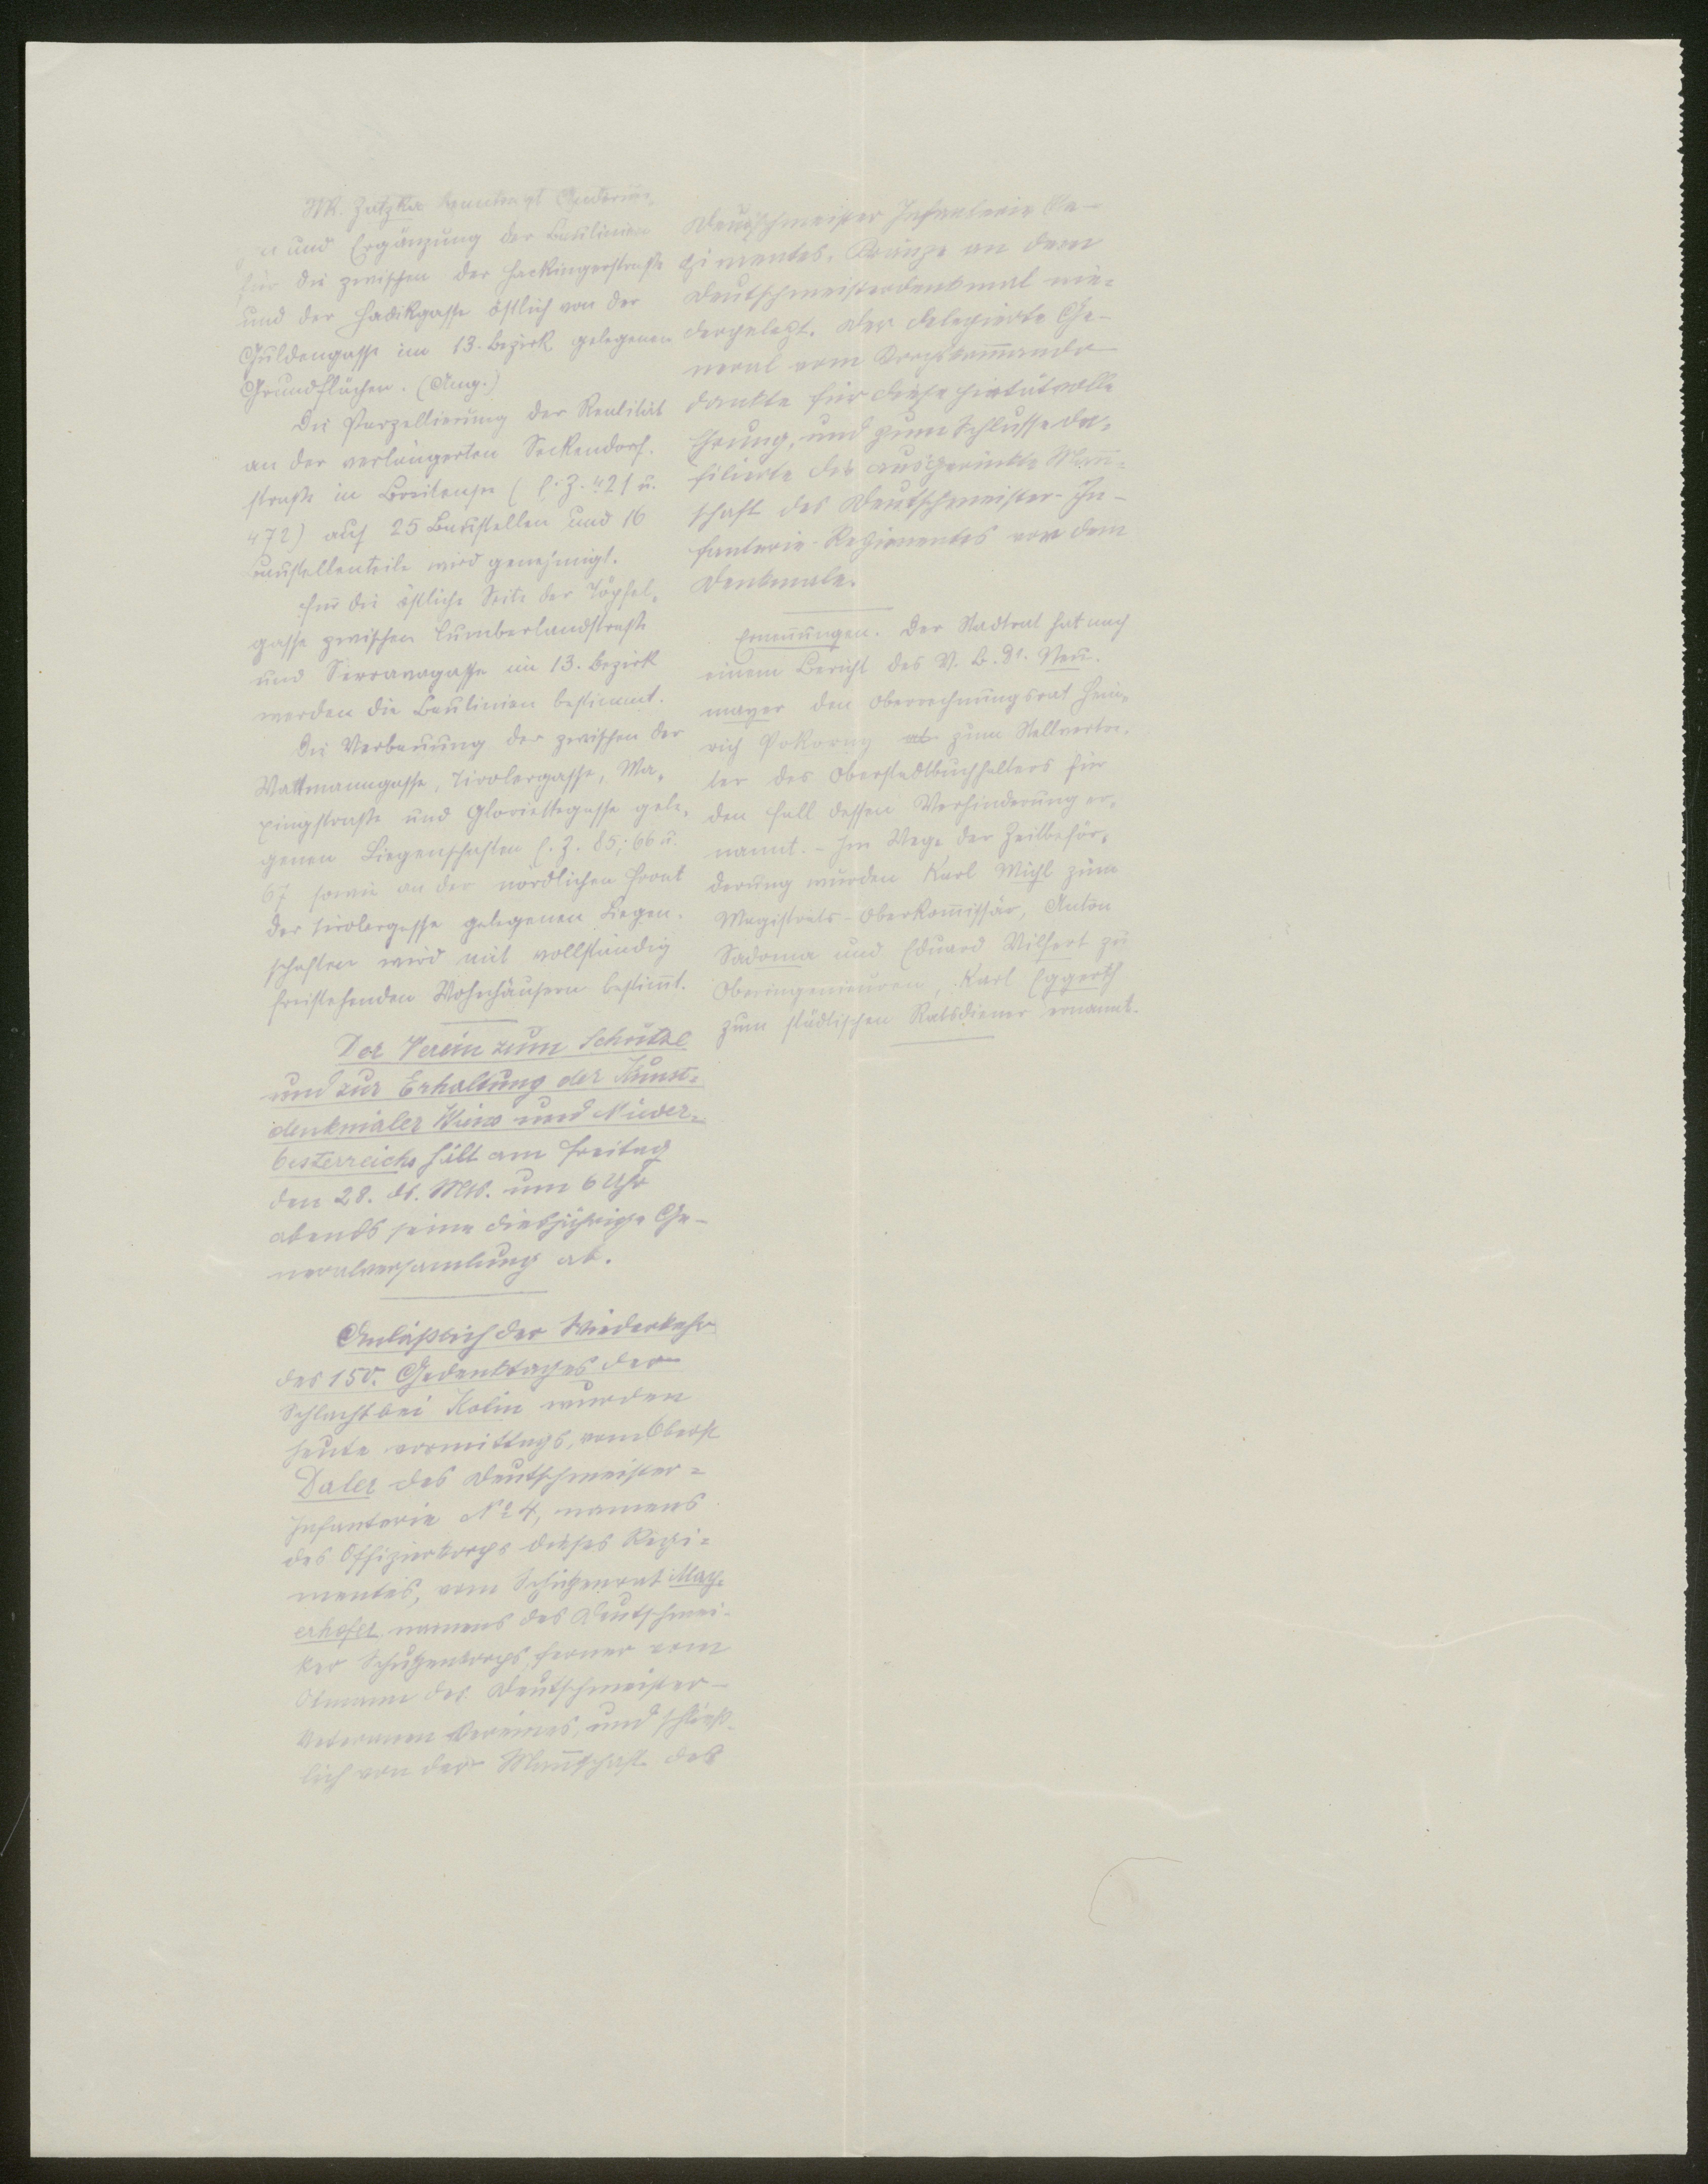 StR. Zatzka beantragt Änderun-
gen und Ergänzung der Baulinien
für die zwischen der Hackingerstraße
und der Hadikgasse östlich von der
Guldengasse im 13. Bezirk gelegenen
Grundflächen. (Ang.)
Die Parzellierung der Realität
an der verlängerten Seckendorf-
straße in Breitensee (E. Z. 421 u.
472) auf 25 Baustellen und 16
Baustellenteile wird genehmigt.
Für die östliche Seite der Töpfel-
gasse zwischen Cumberlandstraße
und Serravagasse im 13. Bezirk
werden die Baulinien bestimmt.
Die Verbauung der zwischen der
Wattmanngasse, Tirolergasse, Ma-
xingstraße und Gloriettegasse gele-
genen Liegenschaften E. Z. 85, 66 u.
67 sowie an der nördlichen Front
der Tirolergasse gelegenen Liegen-
schaften wird mit vollständig
freistehenden Wohnhäusern bestim̄t.
Der Verein zum Schutze
und zur Erhaltung der Kunst-
denkmäler Wiens und Nieder-
österreichs hält am Freitag
den 28. ds. Mts. um 6 Uhr
abends seine diesjährige Ge-
neralversamlung ab.
Anläßlich der Wiederkehr
des 150. Gedenktages der
Schlacht bei Kolin wurden
heute vormittags, vom Oberst
Daler des Deutschmeister-
Infanterie No 4, namens
des Offizierkorps dieses Regi-
mentes, vom Schützenrat May-
erhofer namens des Deutschmei-
ster Schützenkorps, ferner vom
Obmann des Deutschmeister-
Veteranen Vereines, und schließ-
lich von der Man̄schaft des
Deutschmeister Infanterie Re-
gimentes, Kränze an dem
Deutschmeisterdenkmal nie-
dergelegt. Der delegierte Ge-
neral vom Korpskom̄ando
dankte für diese pietätvolle
Ehrung, und zum Schlusse de-
filierte die ausgerückte Man̄-
schaft des Deutschmeister-In-
fanterie-Regimentes vor dem
Denkmale.
Ernen̄ungen. Der Stadtrat hat nach
einem Bericht des V. B. Dr. Neu-
mayer den Oberrechnungsrat Hein-
rich Pokorny zum Stellvertre-
ter des Oberstadtbuchhalters für
den Fall dessen Verhinderung er-
nannt. - Im Wege der Zeitbeför-
derung wurden Karl Michl zum
Magistrats-Oberkom̄issär, Anton
Sadoma und Eduard Wilfert zu
Oberingenieuren, Karl Eggerth
zum städtischen Ratsdiener ernannt.